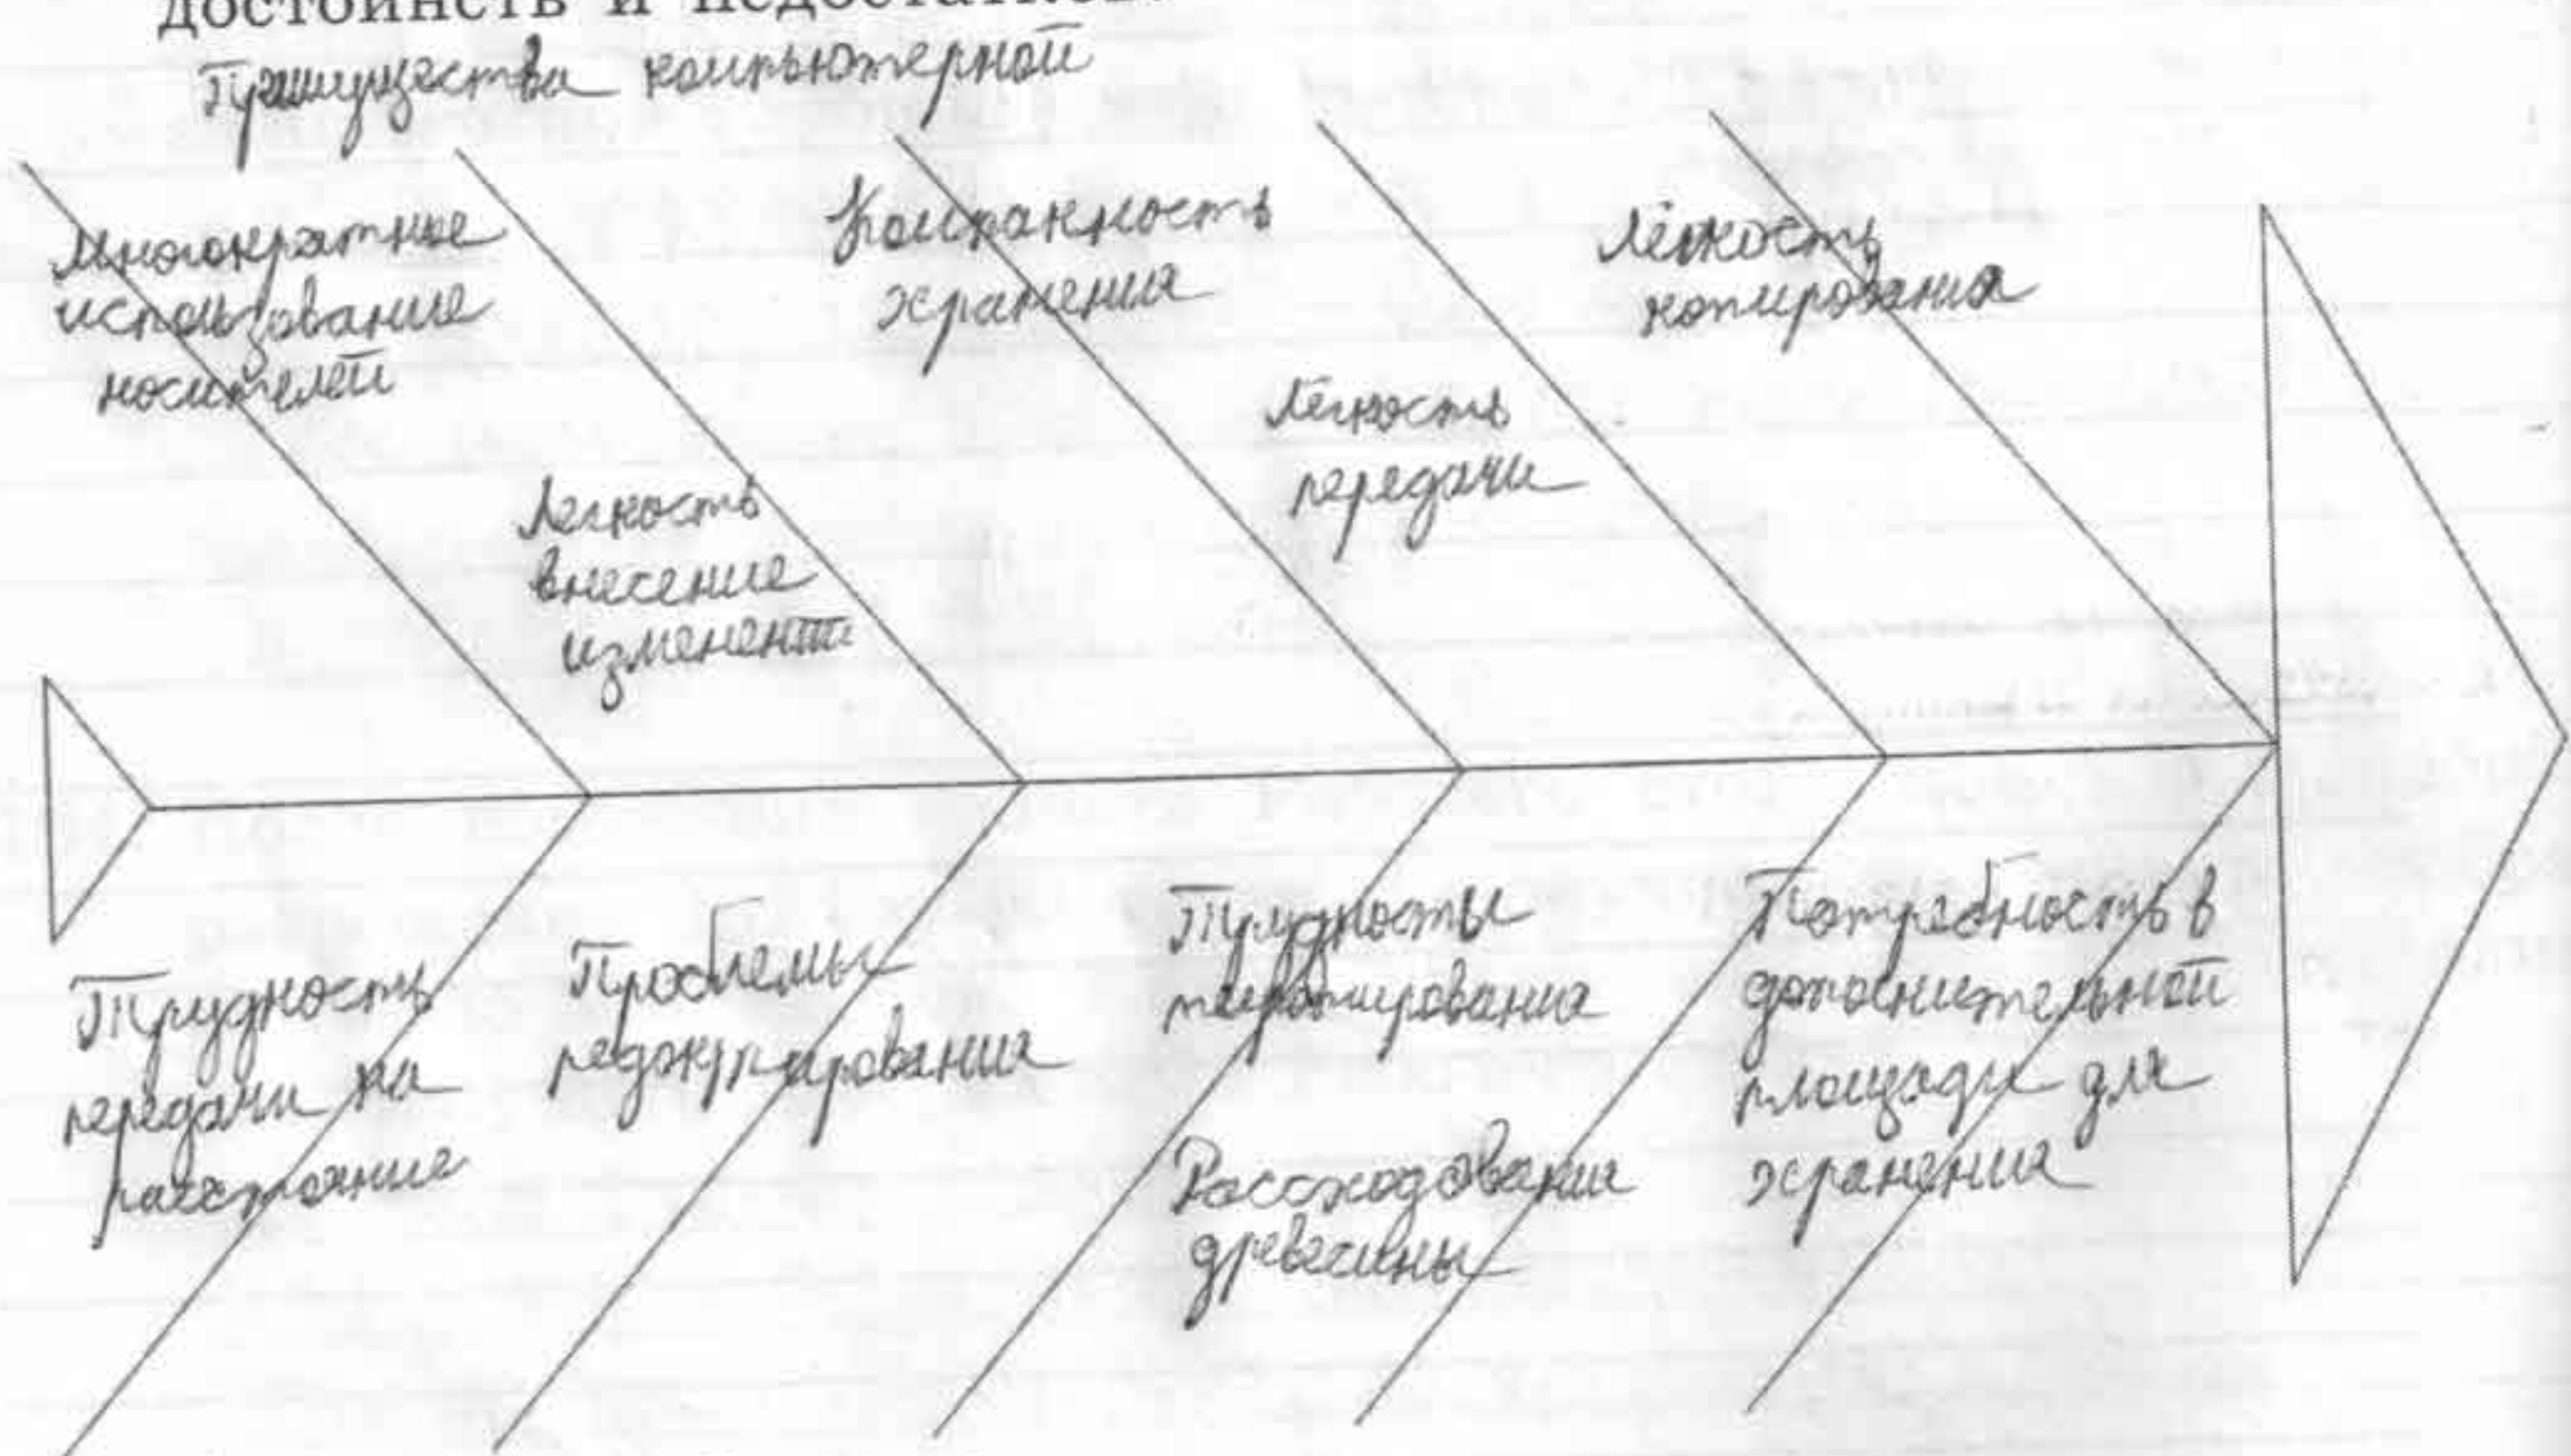 достоинств и недостатков.
Преимущества компьютерной
Многократное
использование
носителей
Легкость
внесение
изменений
Компакность
хранения
Лёгкость
передачи
Лёгкость
копирования
Трудность
передачи на
расстояние
Проблемы
редактирования
Трудносты
Рассходования
древесины
Потребность в
дополнительной
площади для
хранения